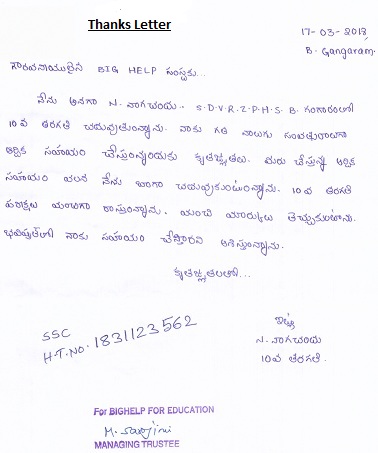 Thanks Letter
17-03-2018
B. Gangaram.
గౌరవనీయులైన BIG HELP సంస్థకు...
నేను అనగా N. నాగచంద్ర. S.D.V.R.Z.P.H.S B. గంగారంలో
10వ తరగతి చదువుతున్నాను. నాకు గత నాలుగు సంవత్సరాలుగా
ఆర్థిక సహాయం చేస్తున్నందుకు కృతజ్ఞతలు. మీరు చేస్తున్న ఆర్థిక
సహాయం వలన నేను బాగా చదువుకుంటున్నాను. 10వ తరగతి
పరీక్షలు బాగా రాస్తున్నాను. మంచి మార్కులు తెచ్చుకుంటాను.
భవిష్యత్తులో నాకు సహాయం చేస్తారని ఆశిస్తున్నాను.
కృతజ్ఞతలతో...
SSC
H.T.NO. 1831123562
ఇట్లు
N. నాగచంద్ర
10వ తరగతి.
For BIGHELP FOR EDUCATION
M. Sarojini
MANAGING TRUSTEE